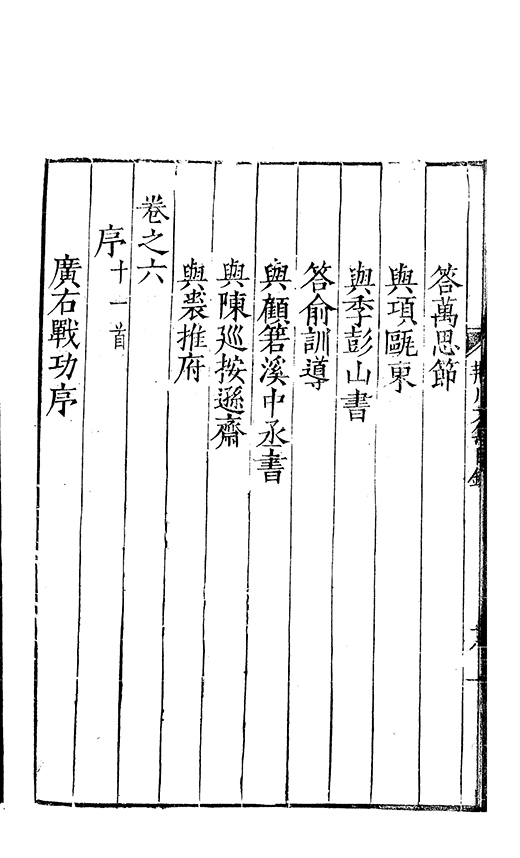 答萬思節
與項甌東
與季彭山書
答俞訓導
與顧箬溪中丞書
與陳巡按遜齋
與裘推府
卷之六
序十一首
廣右戰功序